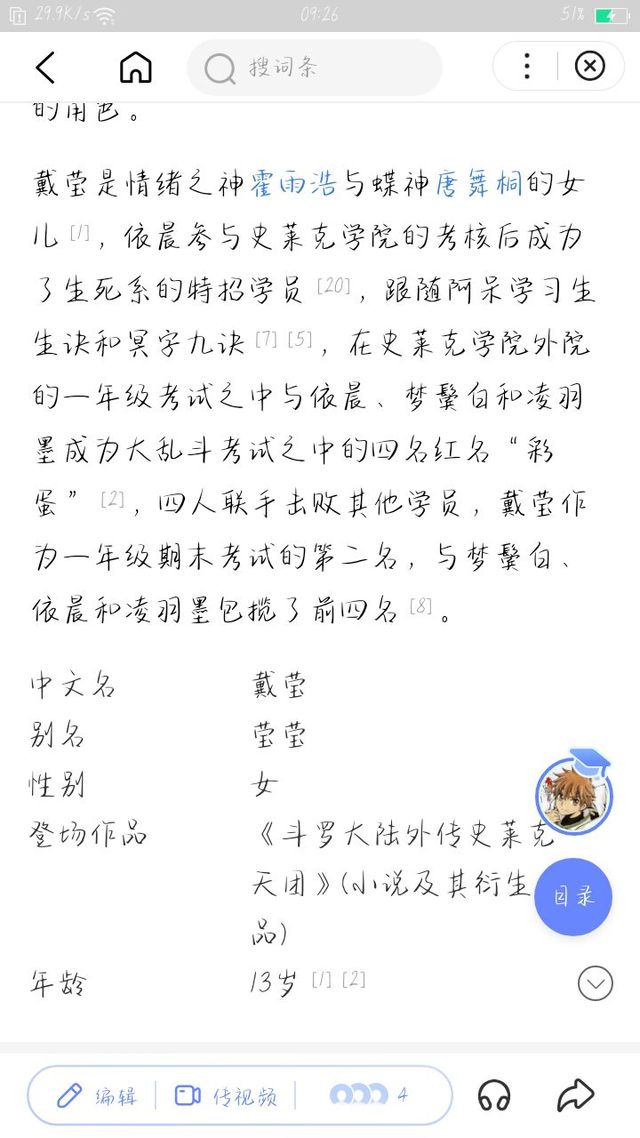 29.9K/s
09:26
51%
搜词条
的角色。
戴莹是情绪之神霍雨浩与蝶神唐舞桐的女
儿[1]，依晨参与史莱克学院的考核后成为
了生死系的特招学员[20]，跟随阿呆学习生
生诀和冥字九诀[7][5]，在史莱克学院外院
的一年级考试之中与依晨、梦鬘白和凌羽
墨成为大乱斗考试之中的四名红名“彩
蛋”[2]，四人联手击败其他学员，戴莹作
为一年级期末考试的第二名，与梦鬘白、
依晨和凌羽墨包揽了前四名[8]。
中文名 戴莹
别名 莹莹
性别 女
登场作品 《斗罗大陆外传史莱克
天团》(小说及其衍生
品)
目录
年龄 13岁[1][2]
编辑 传视频 4